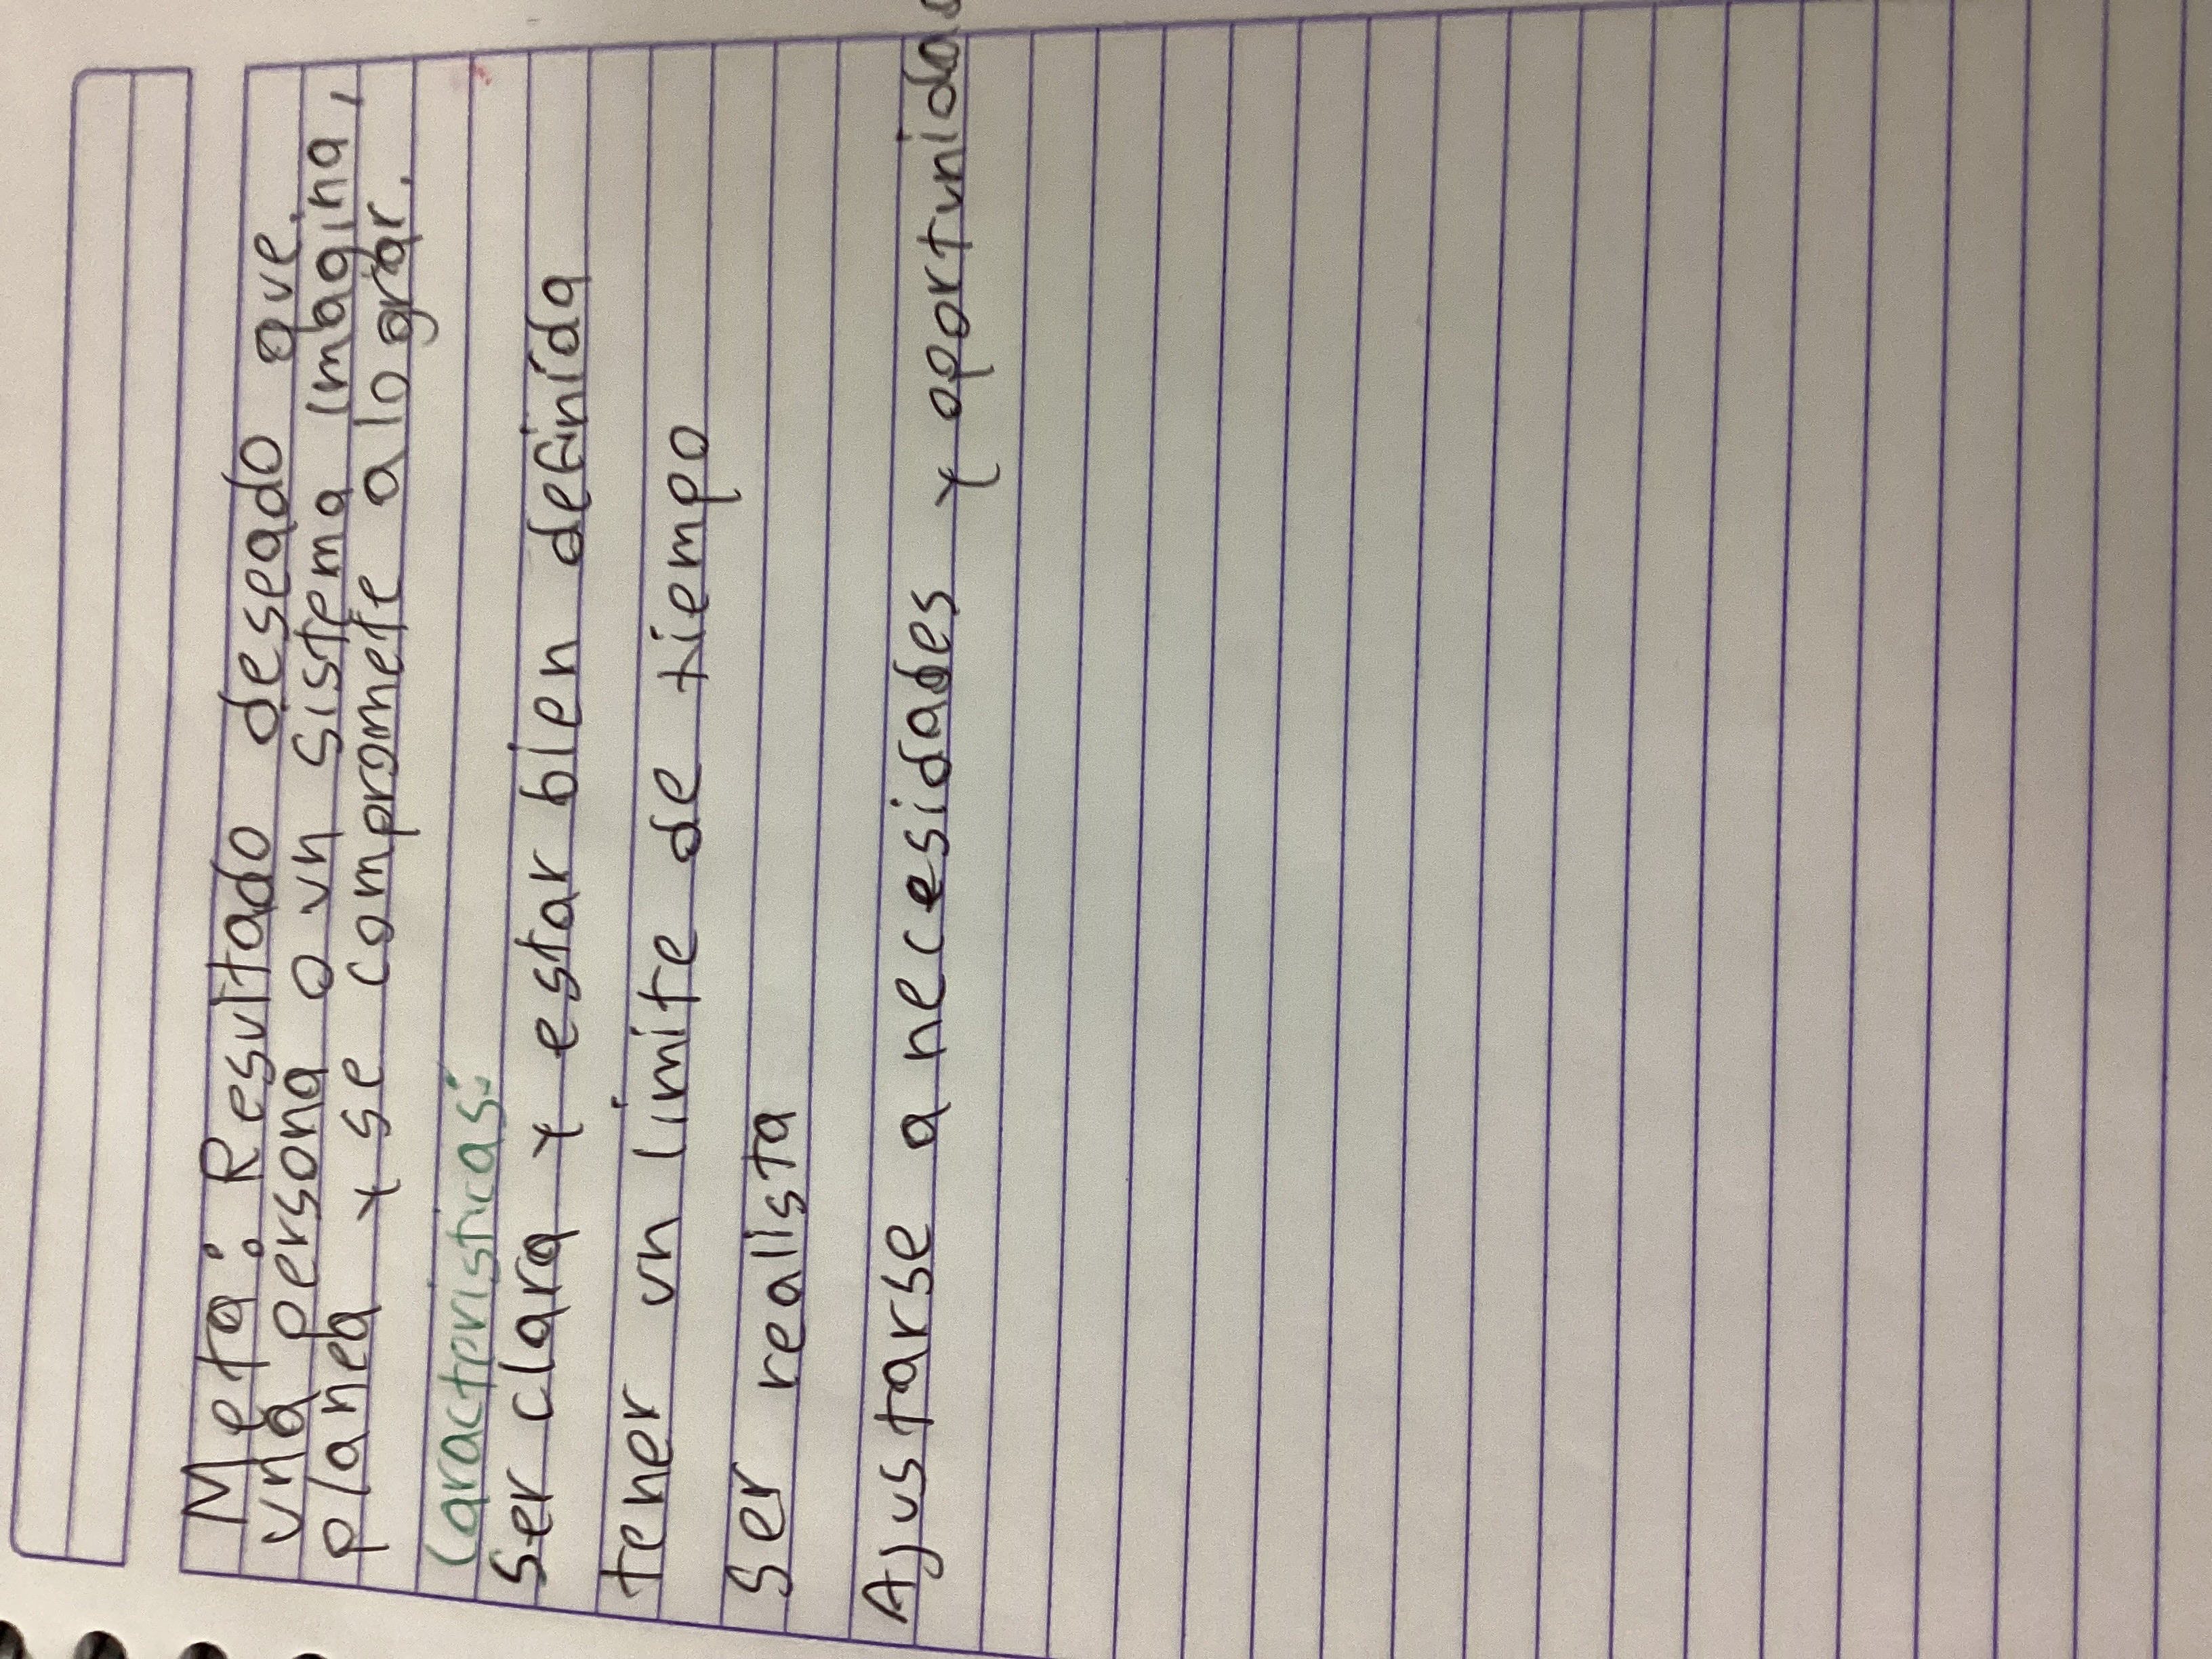 Meta: Resultado deseado que
una persona o un sistema imagina,
planea y se compromete a lograr.
Características:
Ser clara y estar bien definida
tener un límite de tiempo
Ser realista
Ajustarse a necesidades y oportunidades